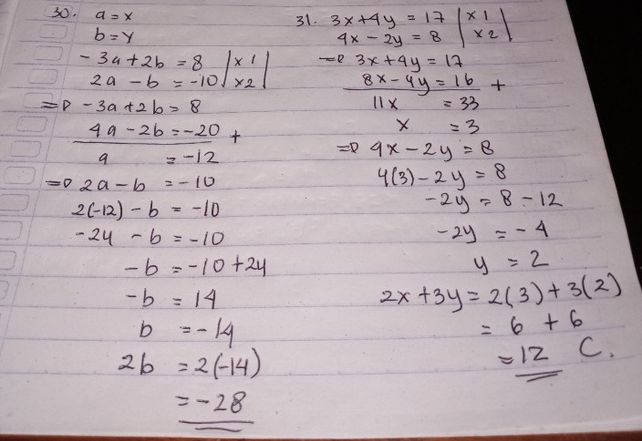 30. a = x
b = y
-3a + 2b = 8 | x 1 |
2a - b = -10 | x 2 |
=> -3a + 2b = 8
4a - 2b = -20 +
a = -12
=> 2a - b = -10
2(-12) - b = -10
-24 - b = -10
-b = -10 + 24
-b = 14
b = -14
2b = 2(-14)
= -28
31. 3x + 4y = 17 | x 1 |
4x - 2y = 8 | x 2 |
=> 3x + 4y = 17
8x - 4y = 16 +
11x = 33
x = 3
=> 4x - 2y = 8
4(3) - 2y = 8
-2y = 8 - 12
-2y = -4
y = 2
2x + 3y = 2(3) + 3(2)
= 6 + 6
= 12 C.